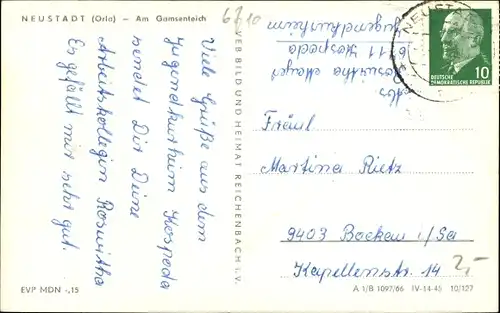 NEUSTADT (Orla) - Am Gamsenteich
6710
Viele Grüße aus dem
Jugendkurheim Kospoda
sendet Dir Deine
Arbeitskollegin Roswitha
Es gefällt mir sehr gut.
VEB BILD UND HEIMAT REICHENBACH i. V.
Abs
Roswitha
6711 Kospoda
Jugendkurheim
NEUSTA
10
DEUTSCHE
DEMOKRATISCHE REPUBLIK
Fräul.
Martina Rietz
9403 Bockau i/Sa
Kapellenstr. 14
2,-
EVP MDN -,15
A 1/B 1097/66 IV-14-45 10/127